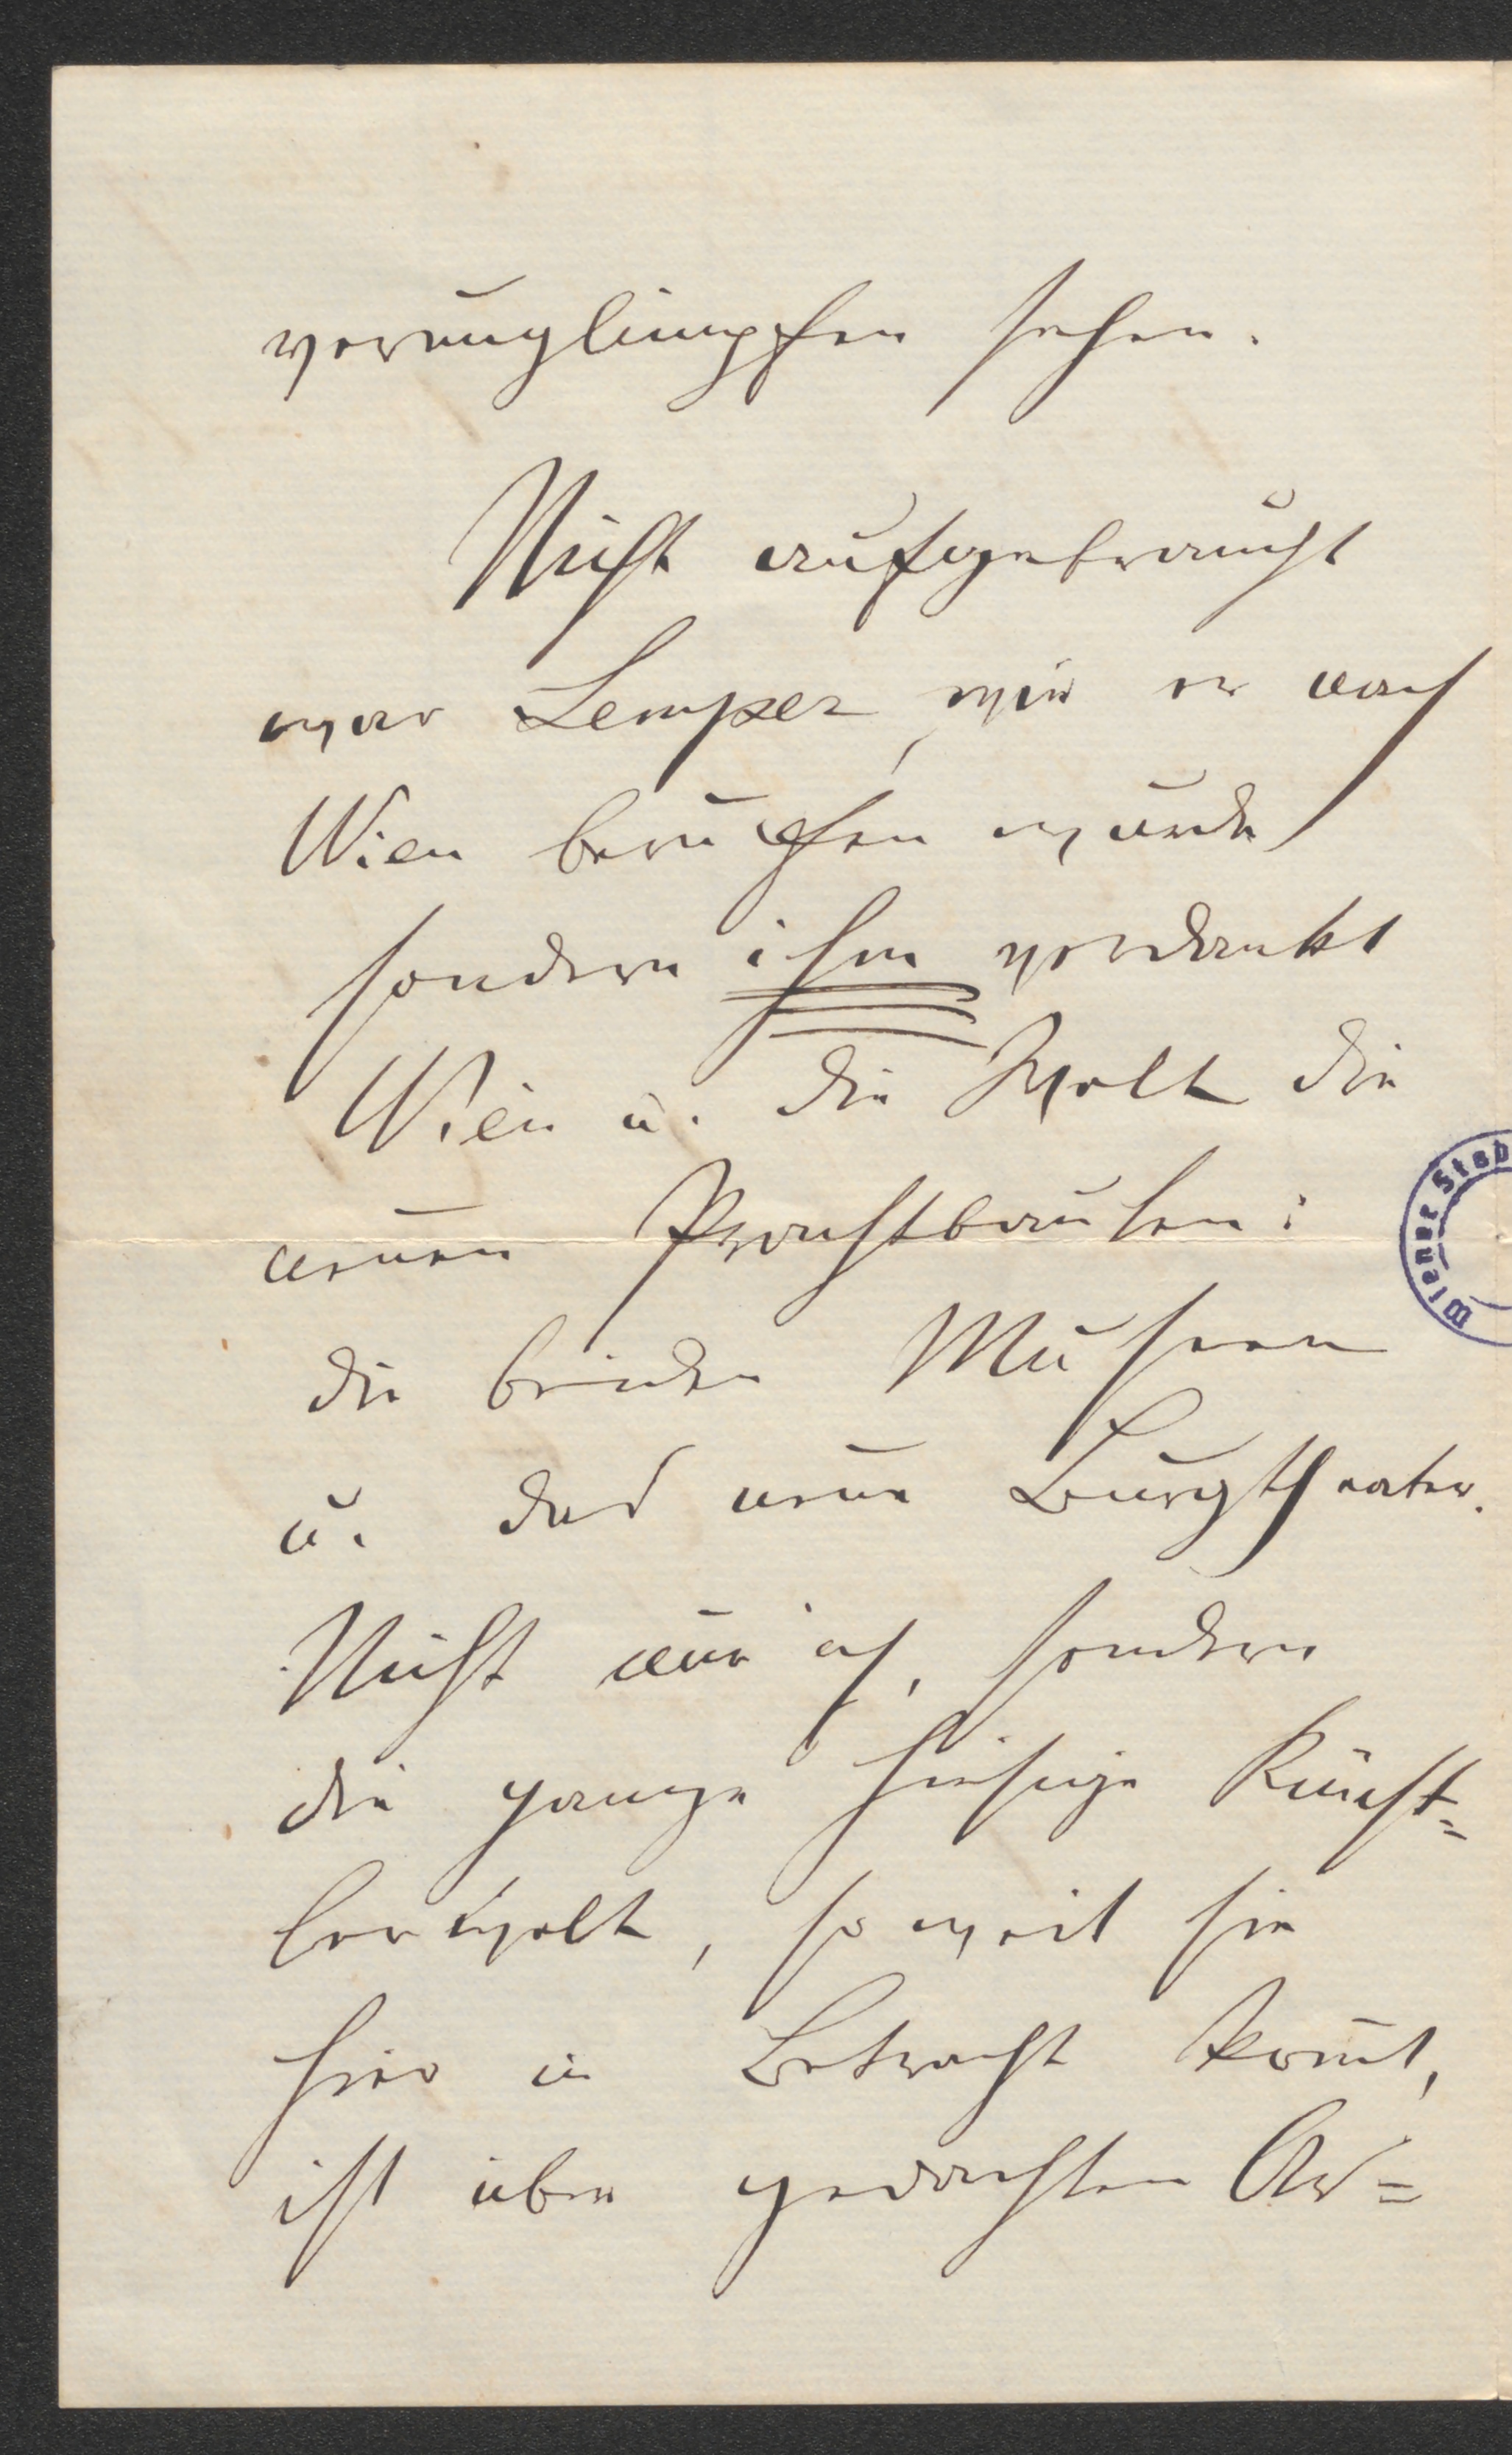 verunglimpfen sehen.
Nicht aufgebraucht
war Semper, wie er nach
Wien berufen wurde
sondern ihm verdankt
Wien u. die Welt die
neuen Prachtbauten:
die beiden Museen
u. das neue Burgtheater.
Nicht nur ich, sondern
die ganze hiesige Künst=
lerwelt, so weit sie
hier in Betracht kom̄t,
ist über gedachten Ar=
Wiener Stab